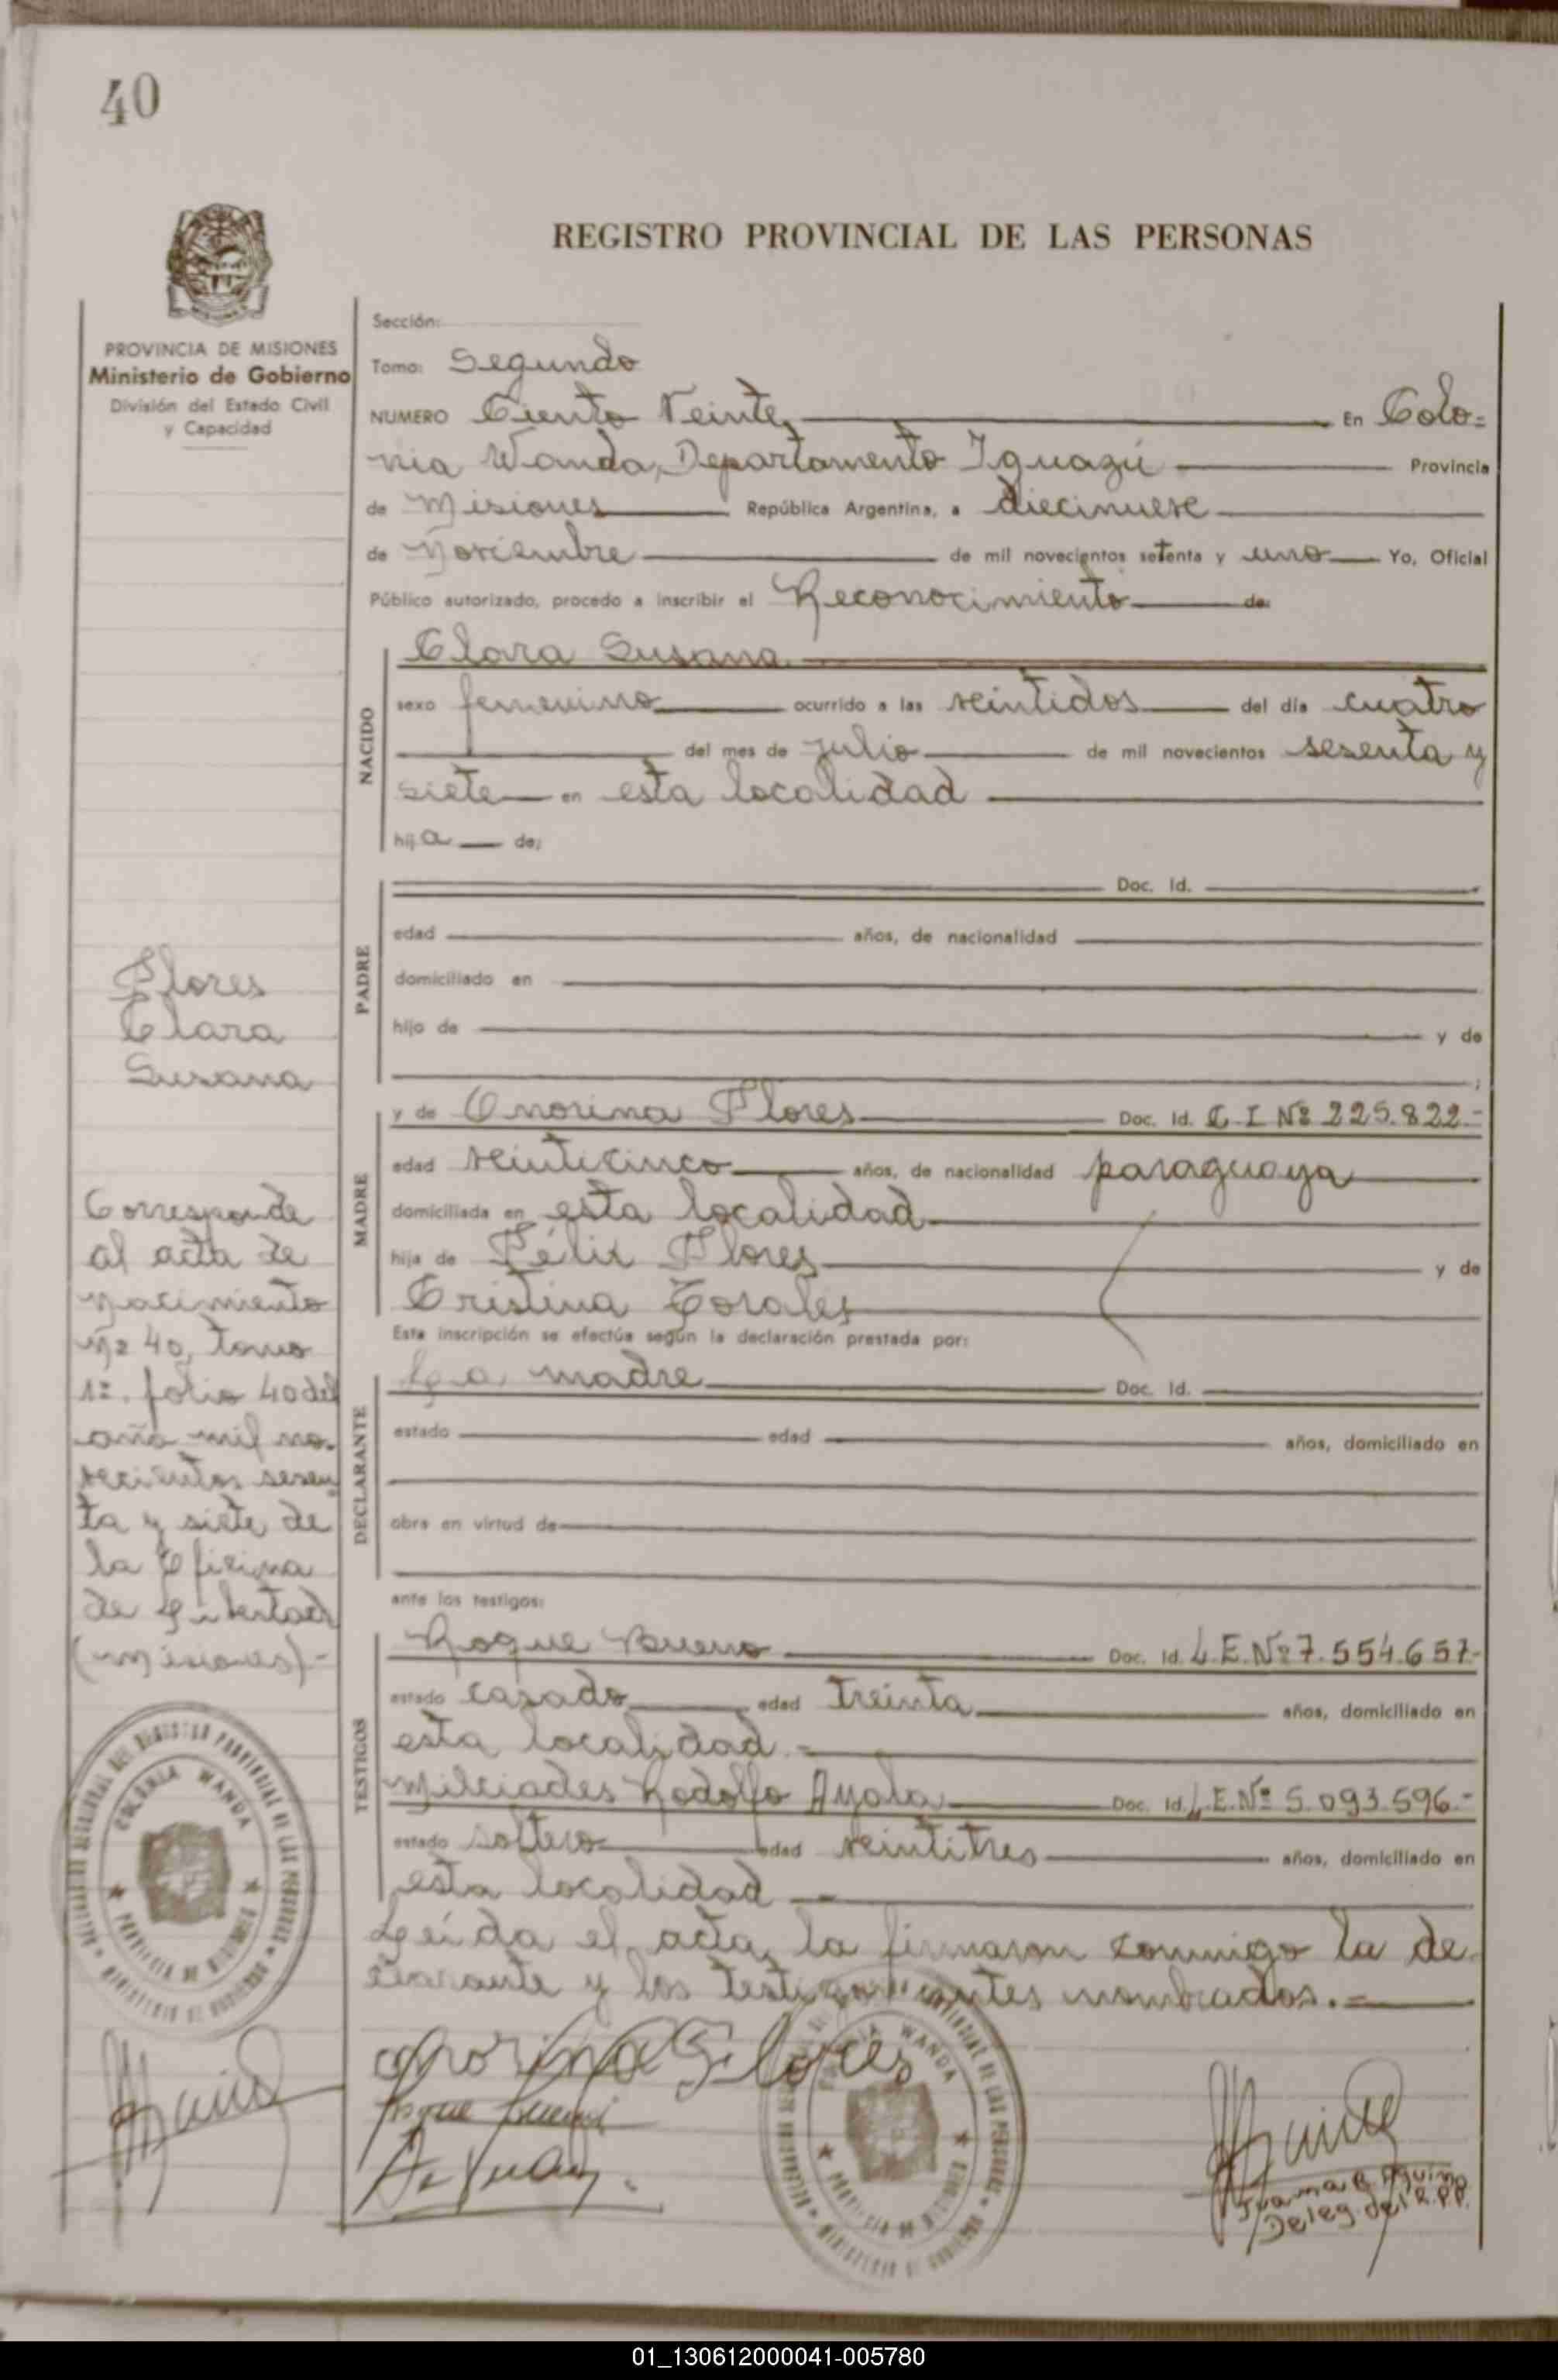 40
REGISTRO PROVINCIAL DE LAS PERSONAS
PROVINCIA DE MISIONES
Ministerio de Gobierno
División del Estado Civil
y Capacidad
Sección:
Tomo: Segundo
NUMERO Ciento Veinte, En Colo=
nia Wanda, Departamento Iguazú Provincia
de Misiones República Argentina, a diecinueve
de Noviembre de mil novecientos setenta y uno Yo, Oficial
Público autorizado, procedo a inscribir el Reconocimiento de:
NACIDO
Clara Susana
sexo femenino ocurrido a las veintidos del día cuatro
del mes de Julio de mil novecientos sesenta y
siete en esta localidad
hija de:
PADRE
Doc. Id.
edad años, de nacionalidad
domiciliado en
hijo de y de
;
Flores
Clara
Susana
MADRE
y de Onorina Flores Doc. Id. C.I Nº 225.822.-
edad veinticinco años, de nacionalidad paraguaya
domiciliada en esta localidad
hija de Félix Flores y de
Cristina Torales
Esta inscripción se efectúa según la declaración prestada por:
DECLARANTE
La madre Doc. Id.
estado edad años, domiciliado en
obra en virtud de
ante los testigos:
Corresponde
al acta de
Nacimiento
Nº 40, tomo
1º. folio 40 del
año mil no-
vecientos sesen
ta y siete de
la Oficina
de Libertad
(Misiones)-
TESTIGOS
Roque Bueno Doc. Id. L.E.Nº 7.554.657.-
estado casado edad treinta años, domiciliado en
esta localidad.-
Milciades Rodolfo Ayala Doc. Id. L.E.Nº 5.093.596.-
estado soltero edad veintitres años, domiciliado en
esta localidad
Leída el acta, la firmaron conmigo la de-
clarante y los testigos antes nombrados.=
COLONIA WANDA
PROVINCIA DE MISIONES
MINISTERIO DE GOBIERNO
REGISTRO PROVINCIAL DE LAS PERSONAS
onorina Flores
Roque Bueno
COLONIA WANDA
PROVINCIA DE MISIONES
MINISTERIO DE GOBIERNO
Juana B Aquino
Deleg. del R.P.P.
01_130612000041-005780